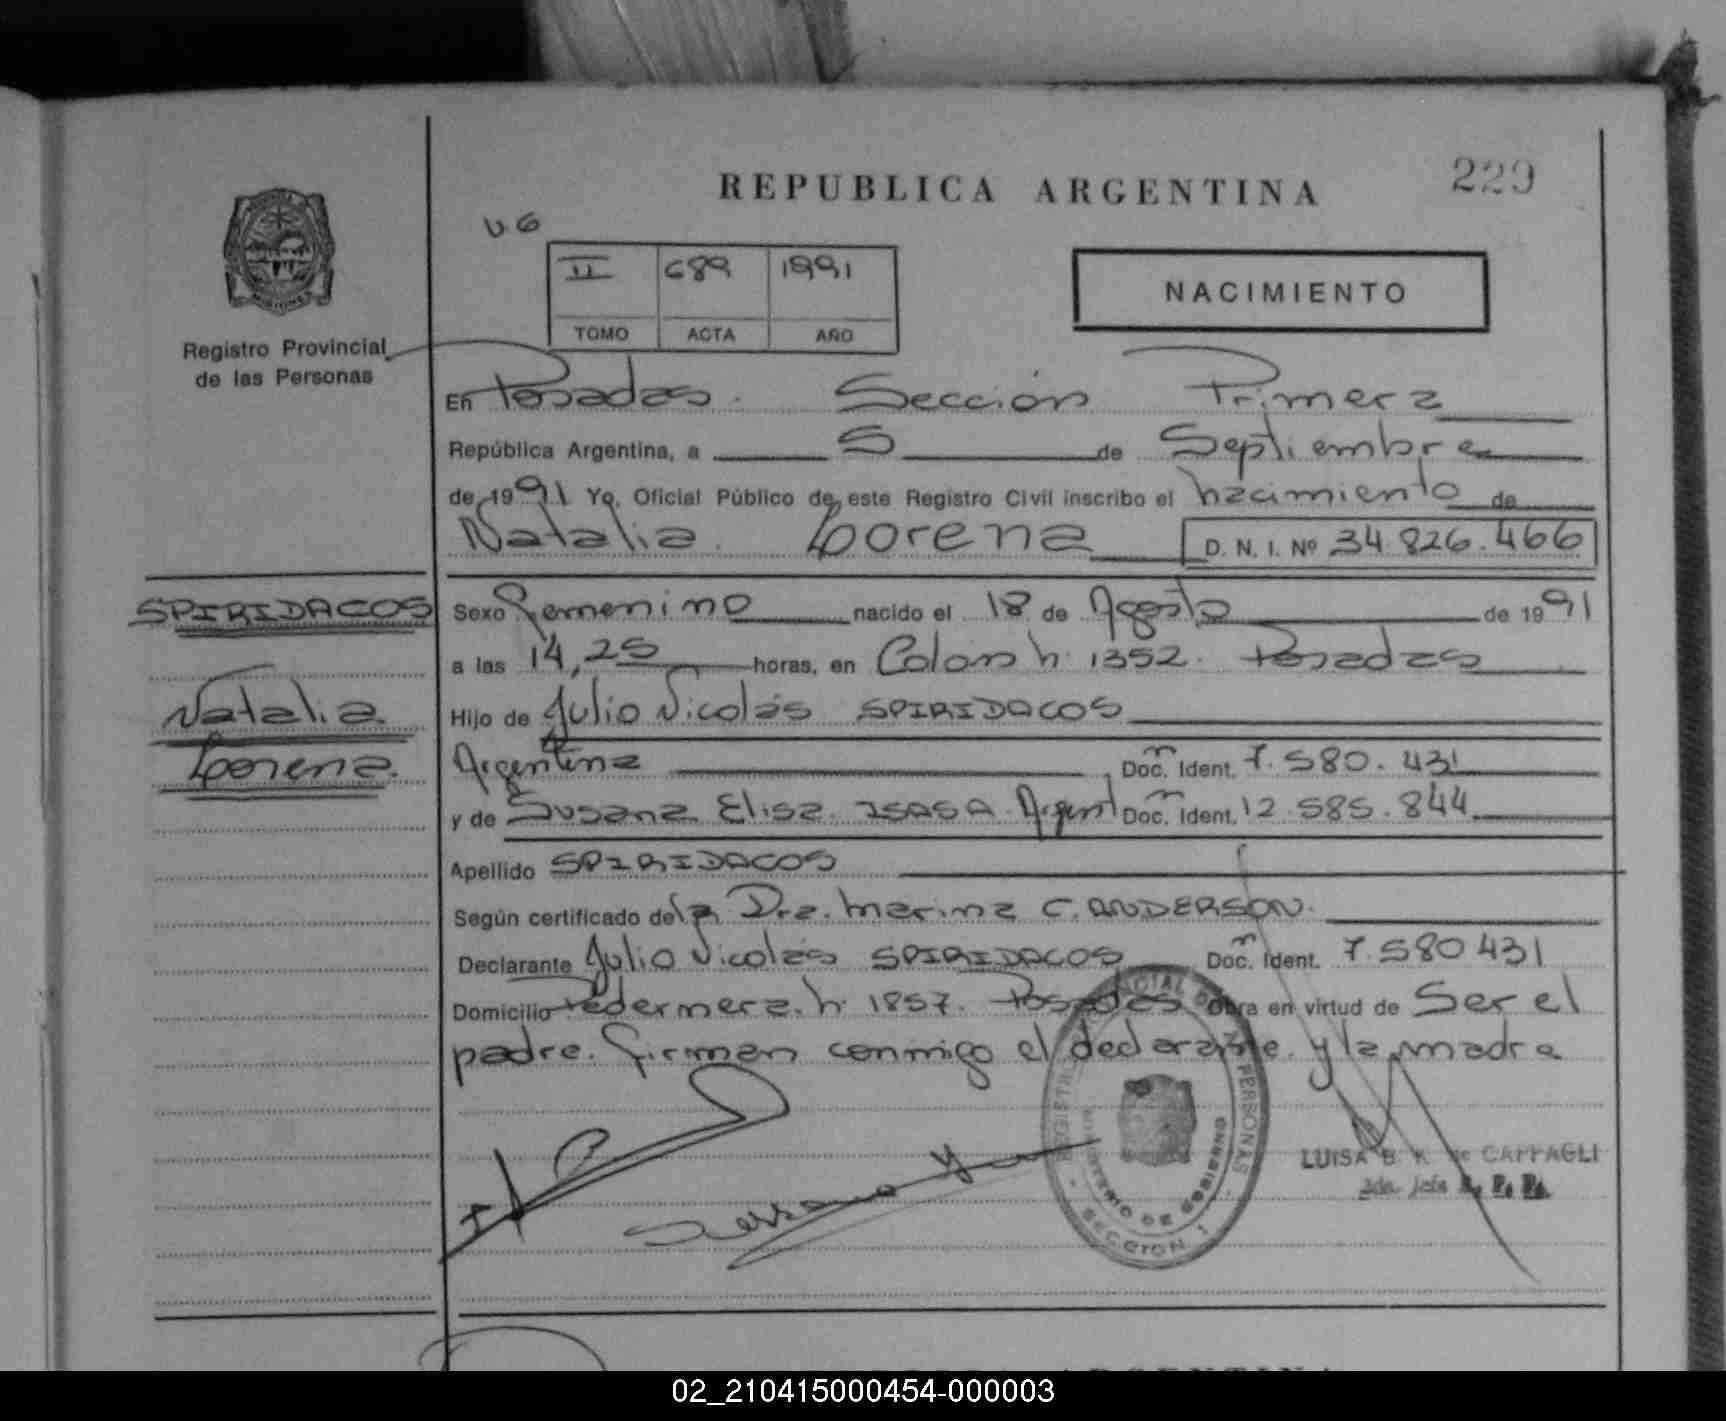 REPUBLICA ARGENTINA
229
II 689 1991
TOMO ACTA AÑO
NACIMIENTO
MISIONES
Registro Provincial
de las Personas
En Posadas. Sección Primera
República Argentina, a 5 de Septiembre
de 1991 Yo, Oficial Público de este Registro Civil inscribo el nacimiento de
Natalia Lorena D. N. I. Nº 34.826.466
SPIRIDACOS
Natalia
Lorena.
Sexo Femenino nacido el 18 de Agosto de 1991
a las 14,25 horas, en Colon n. 1352. Posadas
Hijo de Julio Nicolás SPIRIDACOS
Argentina Doc. Ident. 7.580.431
y de Susana Elisa ISASA Argent Doc. Ident. 12.585.844
Apellido SPIRIDACOS
Según certificado de la Dra. Marina C. ANDERSON.
Declarante Julio Nicolás SPIRIDACOS Doc. Ident. 7.580431
Domicilio Pedernera. n. 1857. Posadas Obra en virtud de Ser el
padre. Firman conmigo el declarante y la madre
REGISTRO PROVINCIAL DE LAS PERSONAS
MINISTERIO DE GOBIERNO
SECCION 1
LUISA B. K. de CAFFAGLI
02_210415000454-000003